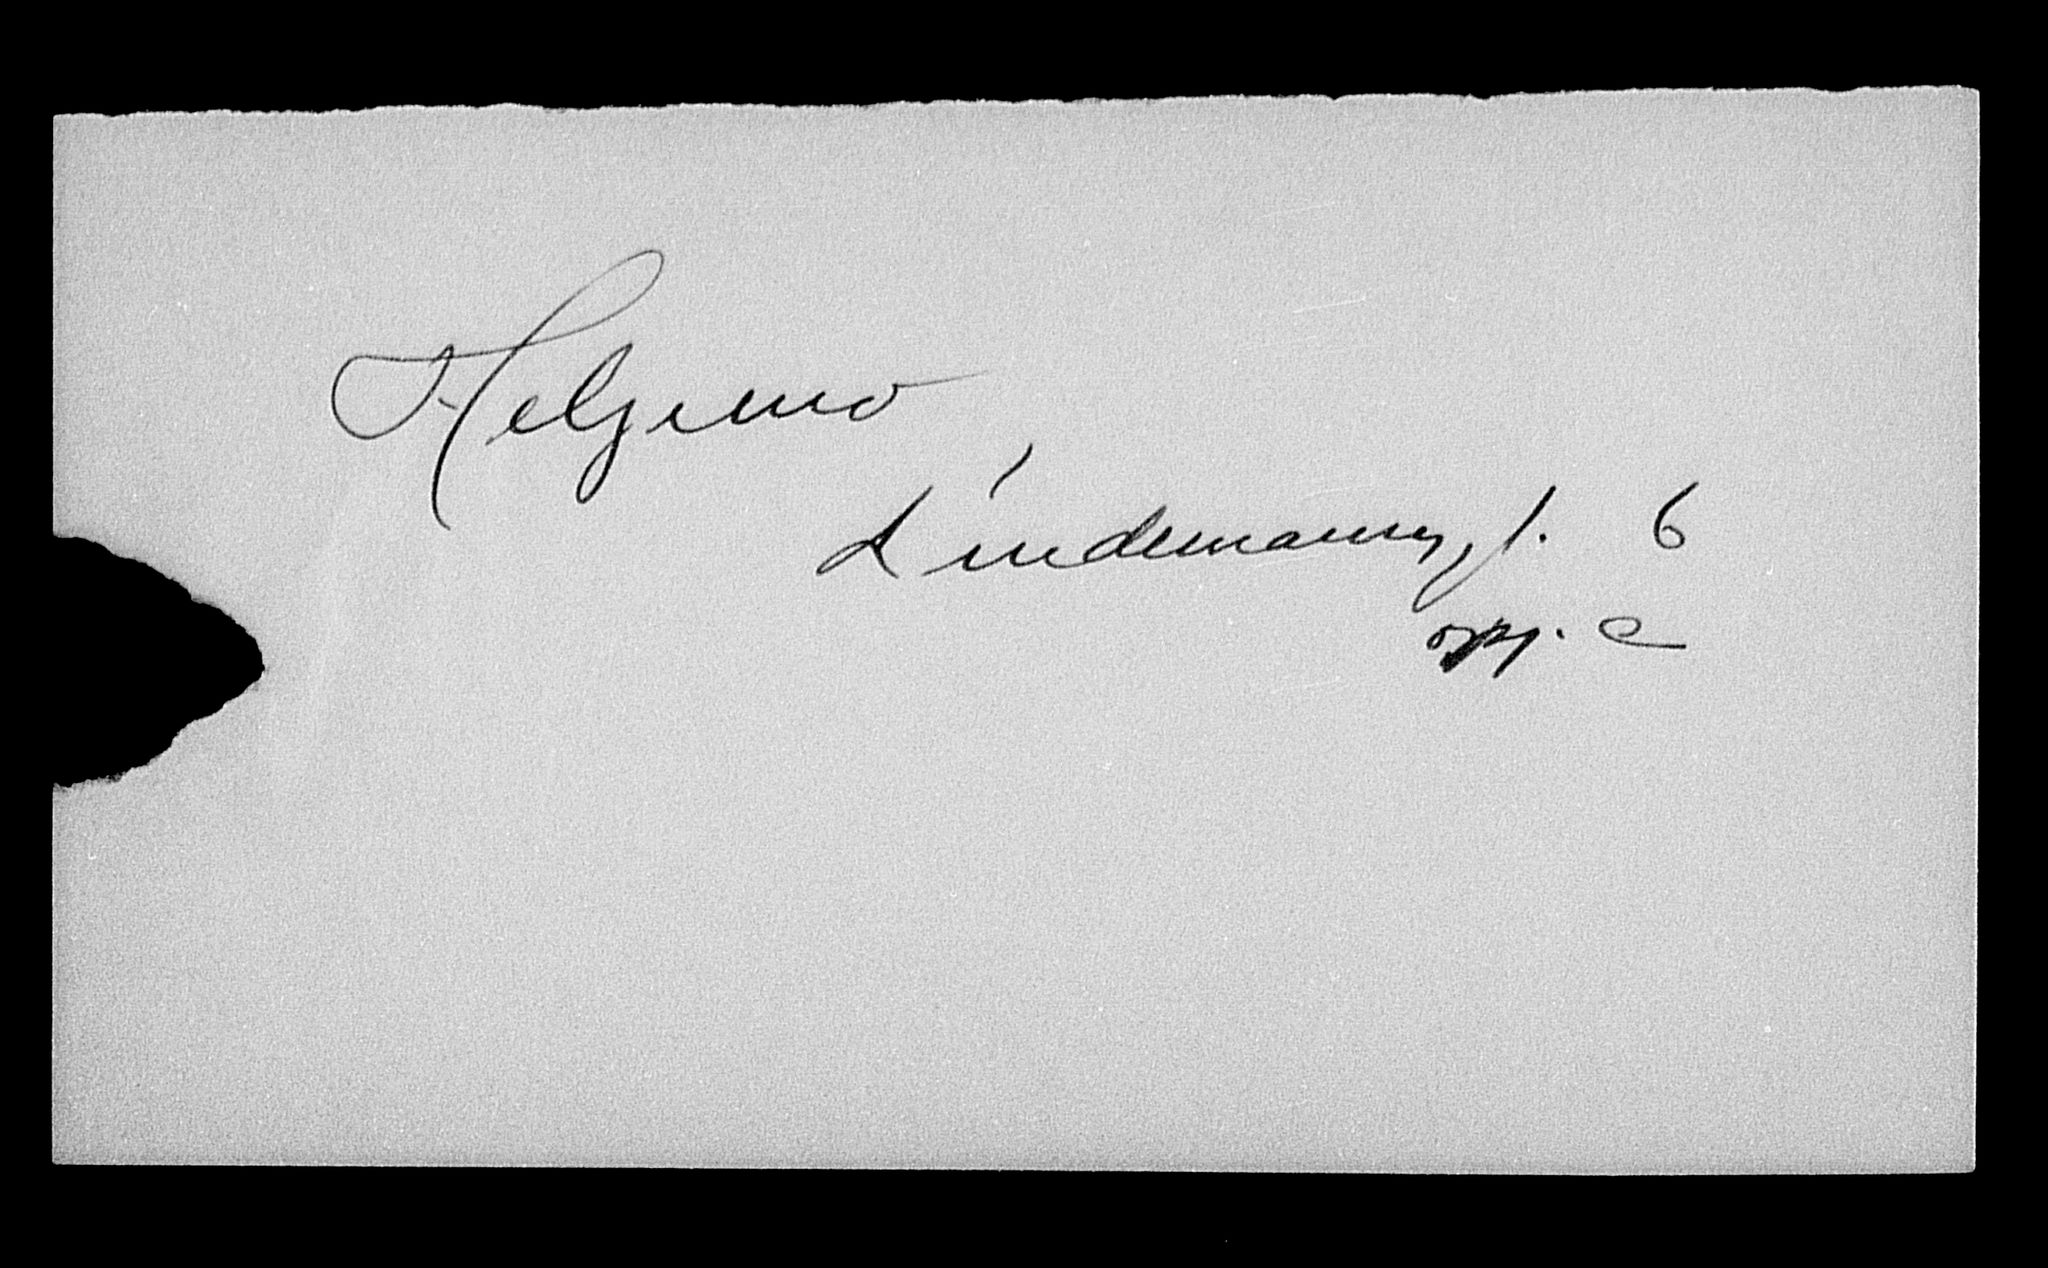 Helgemo
Lindemansgt. 6
opg. C